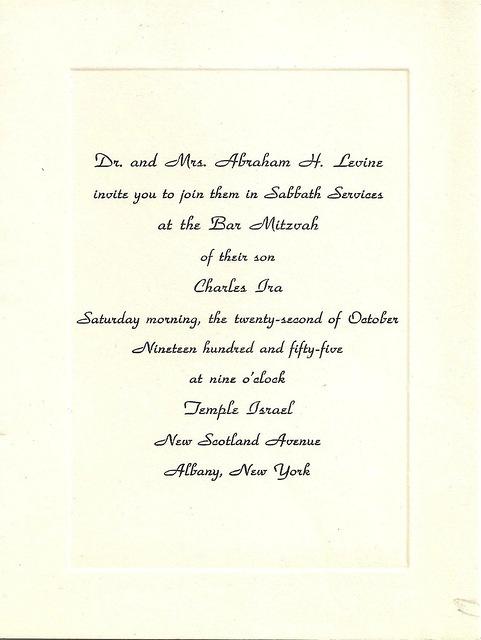 Dr. and Mrs. Abraham H. Levine
invite you to join them in Sabbath Services
at the Bar Mitzvah
of their son
Charles Ira
Saturday morning, the twenty-second of October
Nineteen hundred and fifty-five
at nine o'clock
Temple Israel
New Scotland Avenue
Albany, New York